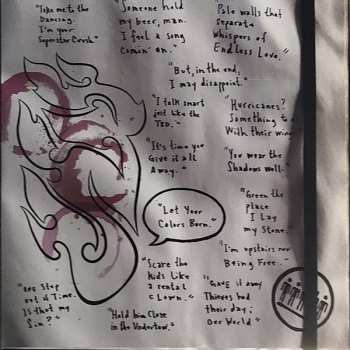 "Take me to the
Dancing.
I'm your
Superstar Crush."
"Someone hold
my beer, man.
I feel a song
comin' on."
Pale walls that
separate
whispers of
Endless Love."
"But, in the end,
I may disappoint."
"I talk smart
just like the
TED."
"Hurricanes?
Something to
With their wing
"It's time you
Give it all
Away."
"You wear the
Shadows well."
"Let Your
Colors Born."
"Green the
place
I Lay
my Stone."
"I'm upstairs now
Being Free."
"Scare the
kids like
a rental
Clown."
"Gave it away
Thieves had
their day;
Our World"
"one Step
out of Time.
Is that my
Sin?"
"Hold him Close
in the Undertow."